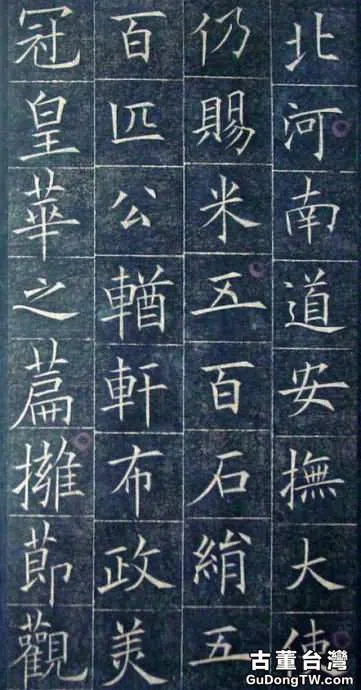 北河南道安撫大使
仍賜米五百石絹五
百匹公輶軒布政美
冠皇華之篇擁節觀
古董台灣
GuDongTW.com